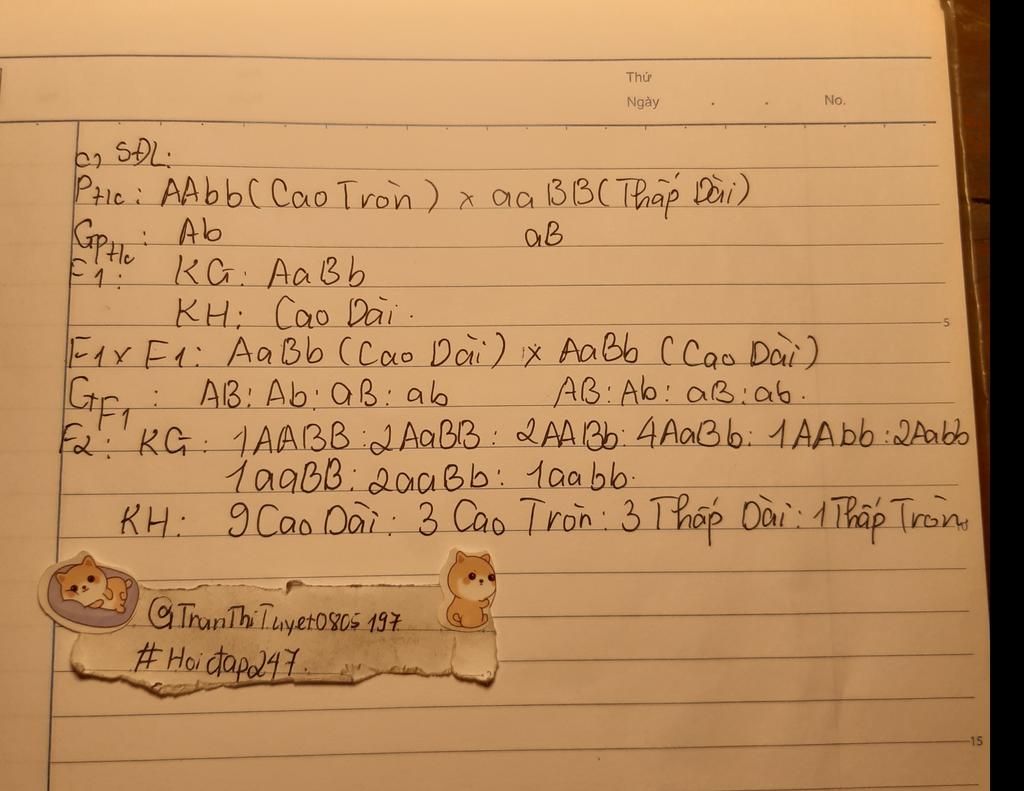 Thứ
Ngày . . No.
c, SĐL:
Ptlc: AAbb (Cao Tròn) x aaBB (Thấp Dài)
GPtlc: Ab aB
F1: KG: AaBb
KH: Cao Dài.
F1 x F1: AaBb (Cao Dài) x AaBb (Cao Dài)
GF1: AB: Ab: aB: ab AB: Ab: aB: ab.
F2: KG: 1AABB: 2AaBB: 2AABb: 4AaBb: 1AAbb: 2Aabb
1aaBB: 2aaBb: 1aabb.
KH: 9 Cao Dài: 3 Cao Tròn: 3 Thấp Dài: 1 Thấp Tròn.
@TranThiTuyet0805197
#Hoiđap247.
5
15